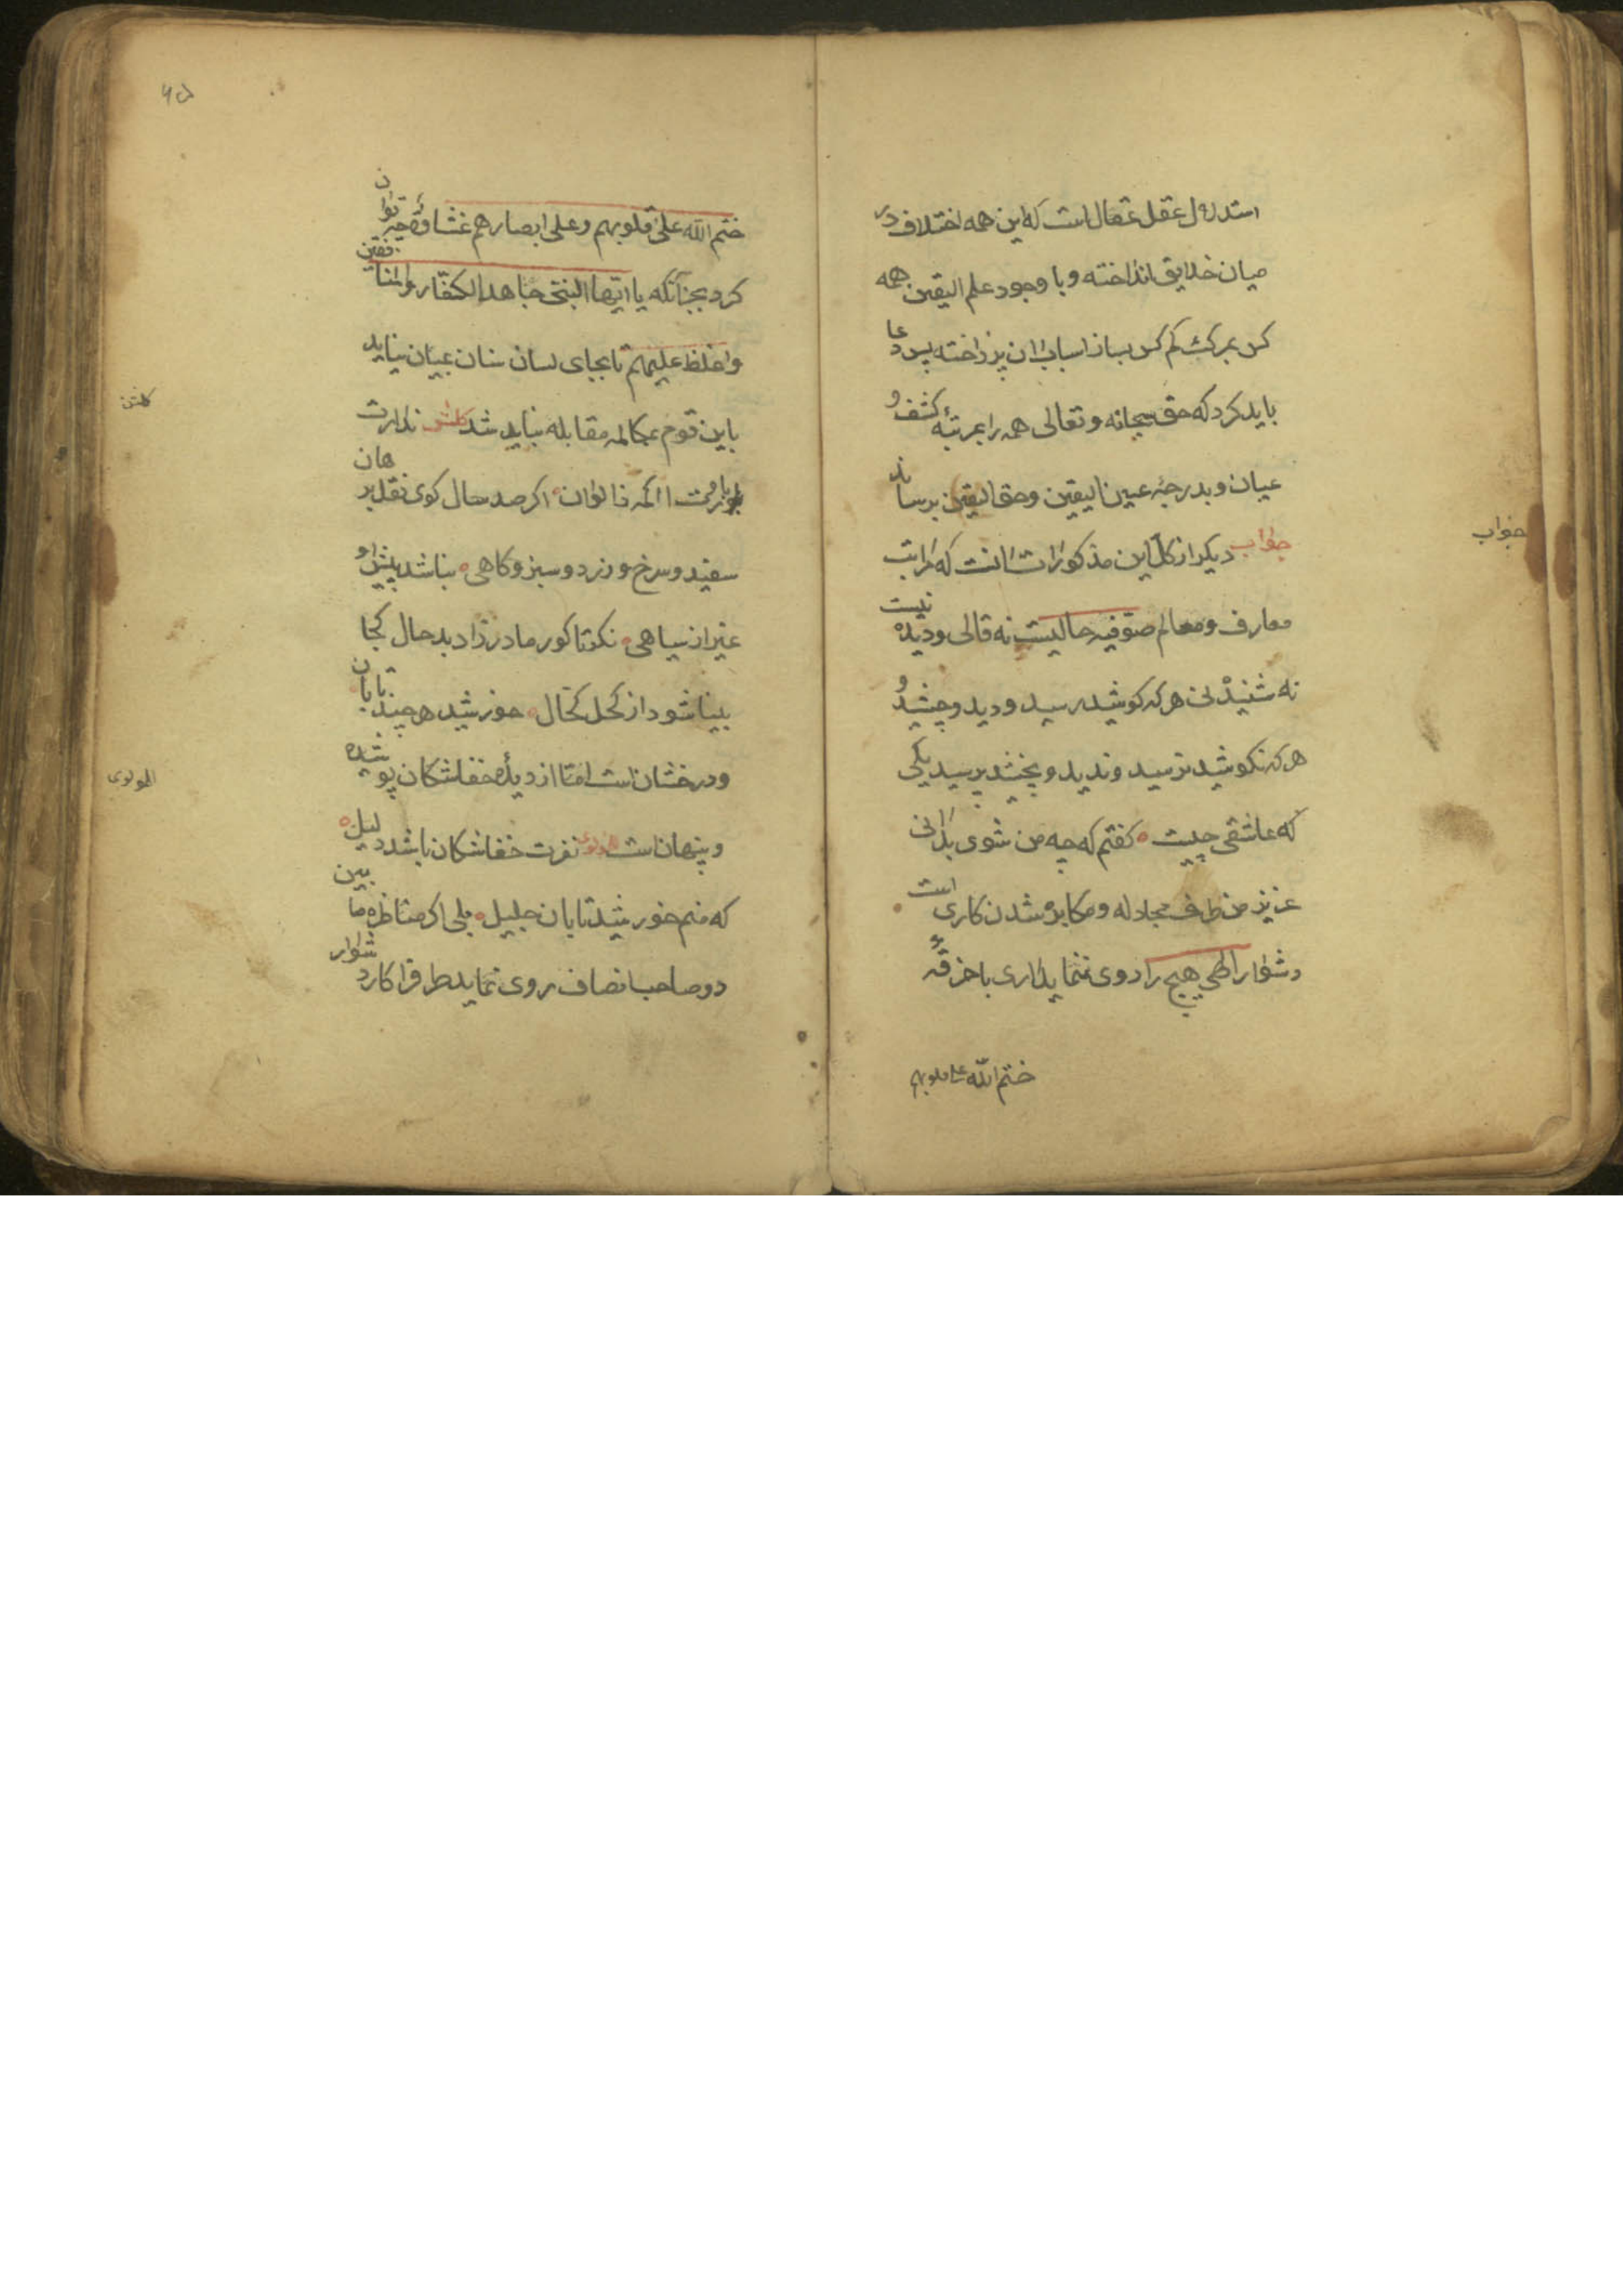 استدلال عقل عقال است که این همه اختلاف در
میان خلایق انداخته و با وجود علم الیقین همه
کس بمرکب کم کس بساز اسباب آن پرداخته پس دعا
باید کرد که حق سبحانه و تعالی همه را بمرتبهٔ کشف و
عیان و بدرجهٔ عین الیقین و حق الیقین برساند
جواب دیکر از کل این مذکورات آنست که مراتب
معارف و معالم صوفیه حالیست نه قالی و دیده نیست
نه شنیدنی هر که کوشید رسید و دید و چشید و
هر که نکوشید نرسید و ندید و نچشید پرسید یکی
که عاشقی چیست ه کفتم که چه من شوی بدانی
عزیز من طرف مجادله و مکابره شدن کاری است
دشوار الهی هیچ را دوی ننماید آری با خرقهٔ
ختم الله علی قلوبهم
جواب
۶۵
ختم الله علی قلوبهم و علی ابصارهم غشاوة چه توان
کرد بجز آنکه یا ایها النبی جاهد الکفار والمنافقین
واغلظ علیهم تا بجای لسان سنان عیان نیاید
باین قوم بمکالمه مقابله نباید شد کلشن ندارت
باورت ااکمه ذالوان اکر صد سال کوی نقل برهان
سفید و سرخ و زرد و سبز و کاهی ه نباشد پیش او
غیر از سیاهی ه نکرتا کور مادرزاد بدحال کجا
بینا شود از کحل کحال ه خورشید هرچند تابان
و درخشان است امّا از دیدهٔ خفاشکان پوشیده
و پنهان است مولوی نفرت خفاشکان باشد دلیل ه
که منم خورشید تابان جلیل ه بلی اکر مناظره ما بین
دو صاحب انصاف روی نماید طرفرا کار دشوار
کلشن
المولوی